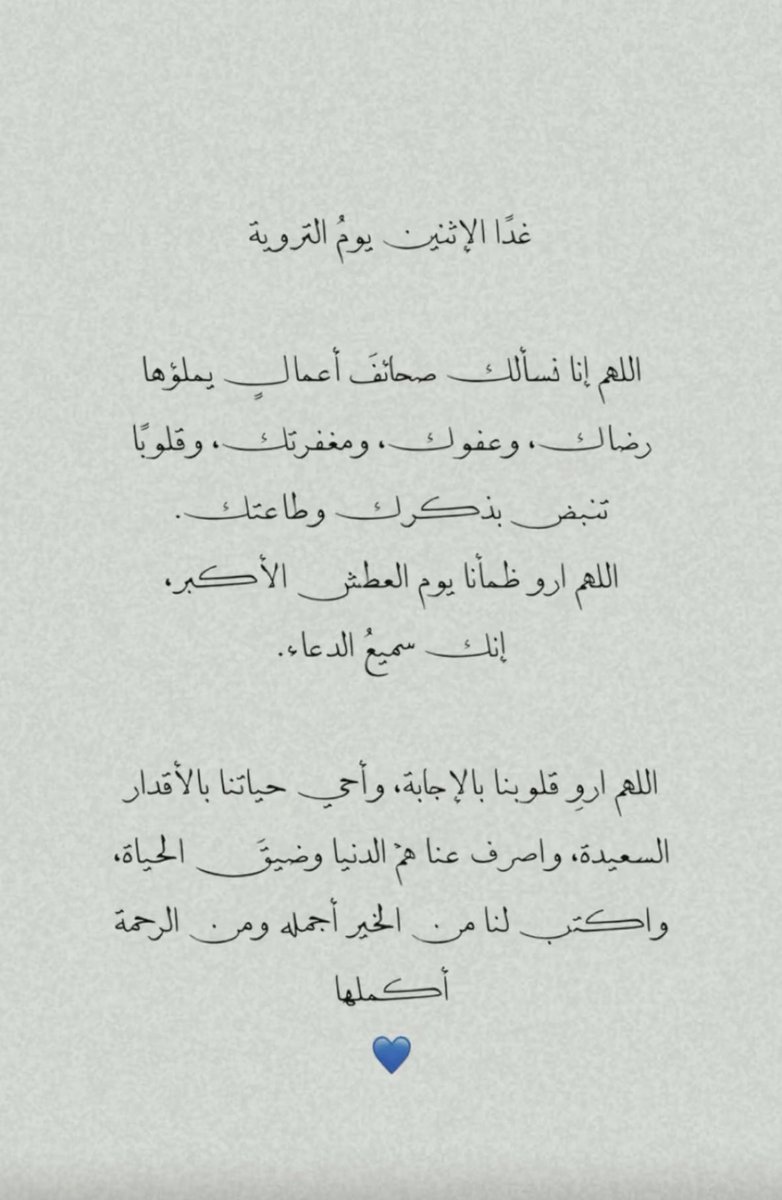 غدًا الإثنين يومُ التروية
اللهم إنا نسألك صحائفَ أعمالٍ يملؤها
رضاك، وعفوك، ومغفرتك، وقلوبًا
تنبض بذكرك وطاعتك.
اللهم ارو ظمأنا يوم العطش الأكبر،
إنك سميعُ الدعاء.
اللهم اروِ قلوبنا بالإجابة، وأحي حياتنا بالأقدار
السعيدة، واصرف عنا همّ الدنيا وضيقَ الحياة،
واكتب لنا من الخير أجمله ومن الرحمة
أكملها
💙